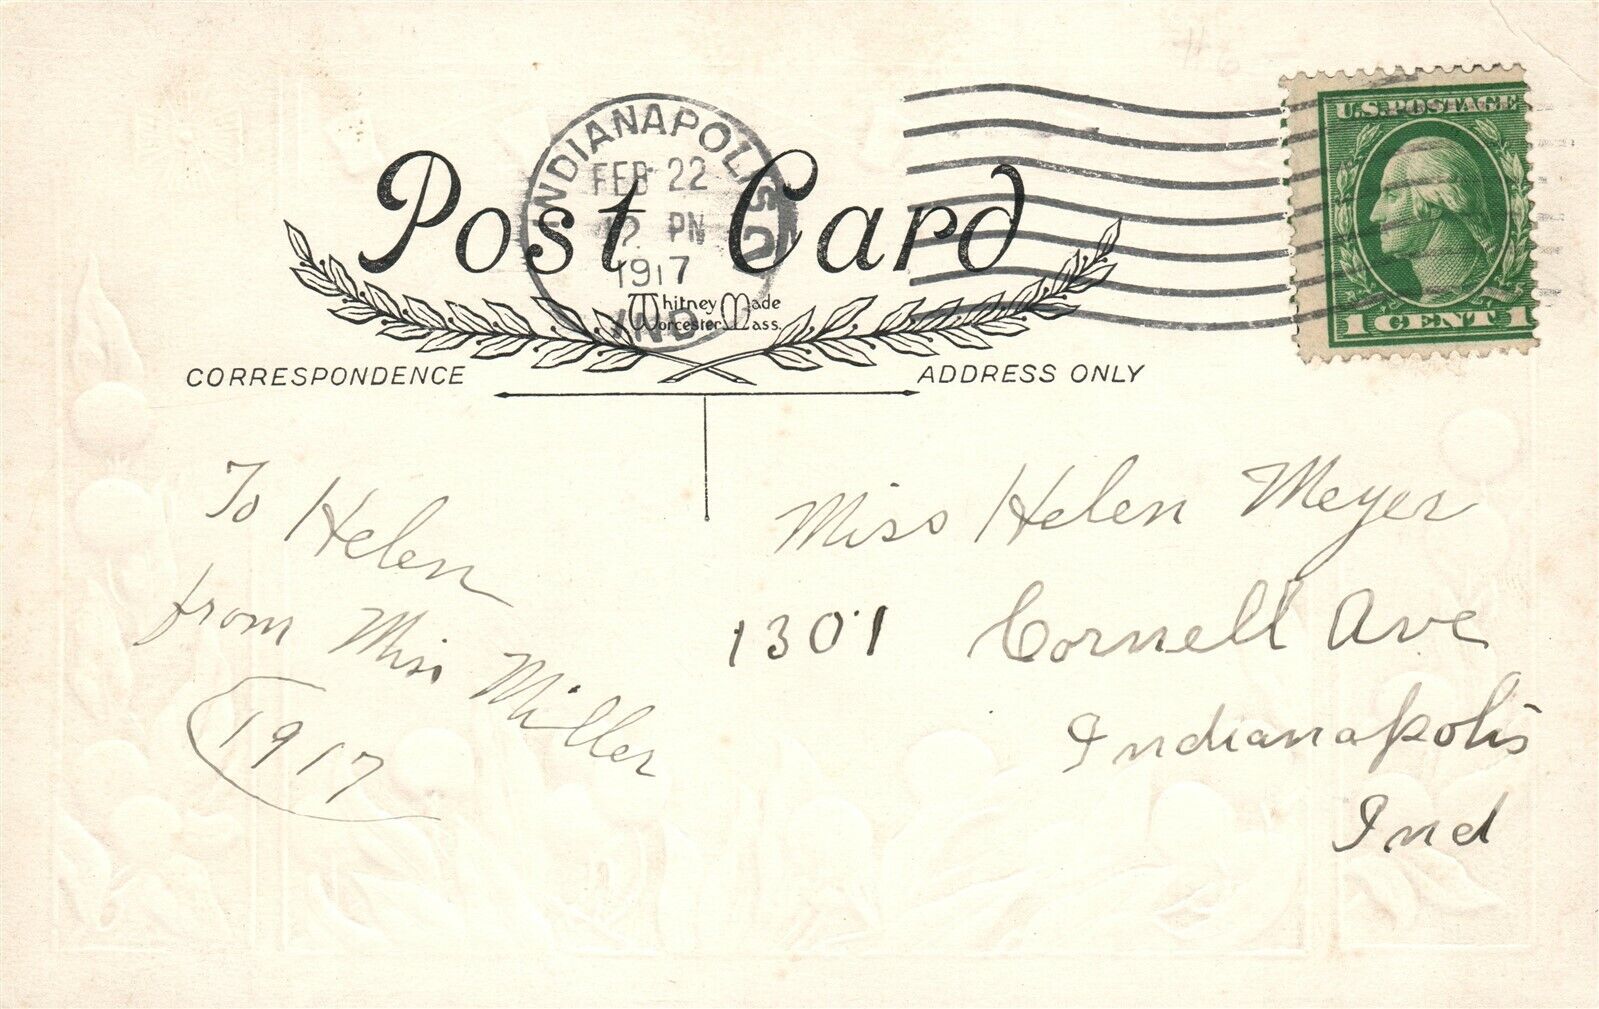 INDIANAPOLIS
FEB 22
12 PN
1917
IND
U.S. POSTAGE
1 CENT 1
Post Card
Whitney Made
Worcester Mass.
CORRESPONDENCE
ADDRESS ONLY
To Helen
from Miss Miller
1917
Miss Helen Meyer
1301 Cornell Ave
Indianapolis
Ind